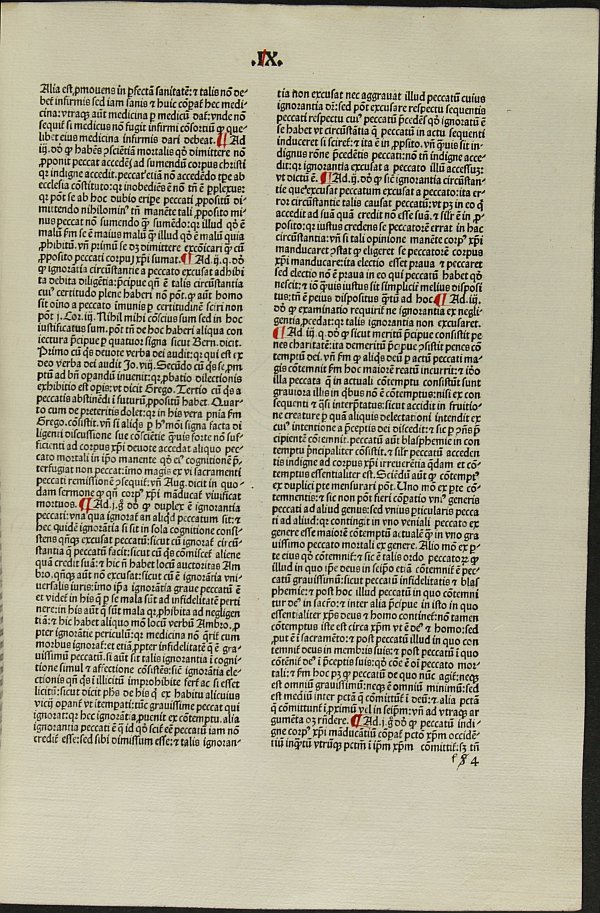 .IX.
Alia est ꝓmouens in ꝑfectã sanitatẽ: ⁊ talis nõ de⸗
bet infirmis sed iam sanis ⁊ huic cõpaꝛ̃ hec medi⸗
cina: vtraqꝫ aũt medicina ꝑ medicũ daꝛ̃: vnde nõ
sequiꝛ̃ si medicus nõ fugit infirmi cõsortiũ ꝙ que
libꝫ eius medicina infirmis dari debeat. ¶ Ad
iij. dõ ꝙ habẽs ꝯsciẽtiã mortalis qð dimittere nõ
ꝓponit peccat accedẽs ad sumendũ corpus christi
qꝛ indigne accedit. peccat etiã nõ accedẽdo tꝑe ab
ecclesia cõstituto: qꝛ inobediẽs ẽ nõ tñ ẽ ꝑplexus:
qꝛ põt se ab hoc dubio eripe peccati ꝓpositũ di⸗
mittendo nihilominꝰ tñ manẽte tali ꝓposito mi⸗
nus peccat nõ sumendo ꝙ̃ sumẽdo: qꝛ illud qð ẽ
malũ ꝑm se ẽ maius malũ ꝙ̃ illud qð ẽ malũ quia
ꝓhibitũ. vñ primũ se dꝫ dimittere excõicari ꝙ̃ cũ
ꝓposito peccati corpus xp̃i sumat. ¶ Ad ij. q. dõ
ꝙ ignorãtia circũstantie a peccato excusat adhibi
ta debita diligẽtia: p̃cipue qñ ẽ talis circũstantia
cuiꝰ certitudo plene haberi nõ põt. ꝙ aũt homo
sit oĩno a peccato ĩmunis ꝑ certitudinẽ sciri non
põt j. Cor. iiij. Nihil mihi cõscius sum sed in hoc
iustificatus sum. põt tñ de hoc haberi aliqua con
iectura p̃cipue ꝑ quatuor signa sicut Bern. dicit.
Primo cũ qs̃ deuote verba dei audit: qꝛ qui est ex
deo verba dei audit Jo. viij. Secũdo cũ qs̃ se ꝓm
ptũ ad bñ opandũ inuenit: qꝛ ꝓbatio dilectionis
exhibitio est opis: vt dicit Grego. Tertio cũ qs̃ a
peccatis abstinẽdi ĩ futurũ ꝓpositũ habet. Quar⸗
to cum de preteritis dolet: qꝛ in his vera pnĩa ꝑm
Grego. cõsistit. vñ si aliqs̃ ꝑ hmõi signa facta di
ligenti discussione sue cõsciẽtie quis forte nõ suf⸗
ficienti ad corpus xp̃i deuote accedat aliquo pec⸗
cato mortali in ip̃o manente qð eiꝰ cognitionem p̃⸗
terfugiat non peccat: imo magis ex vi sacramenti
peccati remissionẽ ꝯsequiꝛ̃. vñ Aug. dicit in quo⸗
dam sermone ꝙ qñ corpꝰ xp̃i mãducaꝛ̃ viuificat
mortuos. ¶ Ad. j. q̃ dõ ꝙ duplex ẽ ignorantia
peccati: vna qua ignoraꝛ̃ an aliqd̃ peccatum sit: ⁊
hec quidẽ ignorãtia si sit in sola cognitione consi⸗
stens qñqꝫ excusat peccatũ: sicut cũ ignoraꝛ̃ circũ⸗
stantia q̃ peccatũ facit: sicut cũ qs̃ cõmisceꝛ̃ aliene
quã credit suã: ⁊ hic ñ habet locũ auctoritas Am
bro. qñqꝫ aũt nõ excusat: sicut cũ ẽ ignorãtia vni⸗
uersalis iuris: imo ip̃a ignorãtia graue peccatũ ẽ
et videꝛ̃ in his q̃ ꝑ se mala sũt ad infidelitatẽ perti
nere: in his aũt q̃ sũt mala qꝛ ꝓhibita ad negligen
tiã: ⁊ hic habet aliquo mõ locũ verbũ Ambro. ꝓ
pter ignorãtie periculũ: qꝛ medicina nõ q̃riꝛ̃ cum
morbus ignoraꝛ̃: et etiã ꝓpter infidelitatẽ q̃ ẽ gra⸗
uissimũ peccatũ. si aũt sit talis ignorantia ĩ cogni⸗
tione simul ⁊ affectione cõsistẽs: sic ignorãtia ele⸗
ctionis qñ qs̃ ĩ illicitũ improhibite ferꝛ̃ ac si esset
licitũ: sicut dicit phs̃ de his q̃ ex habitu alicuius
vicij opanꝛ̃ vt ĩtempati: tũc grauissime peccat qui
ignorat: qꝛ hec ignorãtia puenit ex cõtemptu. alia
ignorãtia peccati ẽ q̃ id qð sciꝛ̃ eẽ peccatũ iam nõ
crediꝛ̃ esse: sed sibi dimissum esse: ⁊ talis ignoran⸗
tia non excusat nec aggrauat illud peccatũ cuius
ignorantia dꝛ̃: sed põt excusare respectu sequentis
peccati respectu cuiꝰ peccatũ p̃cedẽs qð ignoratũ ẽ
se habet vt circũstãtia q̃ peccatũ in actu sequenti
induceret si sciret: ⁊ ita ẽ in ꝓposito. vñ q̃uis sit in⸗
dignus rõne p̃cedẽtis peccati: nõ tñ indigne acce⸗
dit: qꝛ ignorantia excusat a peccato illũ accessũ:
vt dictũ ẽ. ¶ Ad. ij. dõ ꝙ sic ignorantia circũstan⸗
tie que excusat peccatum excusat a peccato: ita er⸗
ror circũstantie talis causat peccatũ: vt pꝫ in eo q̃
accedit ad suã quã credit nõ esse suã. ⁊ silꝛ̃ ẽ in ꝓ⸗
posito: qꝛ iustus credens se peccatorẽ errat in hac
circũstantia: vñ si tali opinione manẽte corpꝰ xp̃i
manducaret ꝯstat ꝙ eligeret se peccatorẽ corpus
xp̃i manducare: ita electio esset praua ⁊ peccaret
sed electio nõ ẽ praua in eo qui peccatũ habet qð
nescit: ⁊ iõ q̃uis iustus sit simplicit̃ melius disposi
tus: tñ ẽ peius dispositus q̃ntũ ad hoc ¶ Ad. iij.
dõ ꝙ examinatio requiriꝛ̃ ne ignorantia ex negli⸗
gentia ꝓcedat: qꝛ talis ignorantia non excusaret.
¶ Ad iij. q. dõ ꝙ sicut meritũ p̃cipue consistit pe
nes charitatẽ: ita demeritũ p̃cipue ꝯsistit penes cõ
temptũ dei. vñ ꝑm ꝙ aliqs̃ deũ ꝑ actũ peccati ma⸗
gis cõtemnit ꝑm hoc maiorẽ reatũ incurrit: ⁊ iõo
illa peccata q̃ in actuali cõtemptu consistũt sunt
grauiora illis in q̃bus nõ ẽ cõtemptus: nisi ex con
sequenti ⁊ qs̃i interp̃tatus: sicut accidit in fruitio⸗
ne creature ꝑ quã aliquis delectationi intendit ex
cuiꝰ intentione a p̃ceptis dei discedit: ⁊ sic ꝑ ꝯñs p̃⸗
cipientẽ cõtemnit. peccatũ aũt blasphemie in con
temptu p̃ncipaliter cõsistit: ⁊ silꝛ̃ peccatũ acceden
tis indigne ad corpus xp̃i irreuerẽtia q̃dam et cõ⸗
temptus essentialiter est. Sciendũ aũt ꝙ cõtemptꝰ
ex duplici pte mensurari põt. Uno mõ ex pte cõ⸗
temnentis: ⁊ sic non põt fieri cõpatio vniꝰ generis
peccati ad aliud genus: sed vnius pticularis pecca
ti ad aliud: qꝛ contingit in vno veniali peccato ex
genere esse maiorẽ cõtemptũ actualẽ ꝙ̃ in vno gra
uissimo peccato mortali ex genere. Alio mõ ex p⸗
te eius qð cõtemniꝛ̃: ⁊ sic ẽ talis ordo peccatorũ ꝙ
illud in quo ip̃e deus in seip̃o etiã cõtemniꝛ̃ ẽ pec⸗
catũ grauissimũ: sicut peccatũ infidelitatis ⁊ blas
phemie: ⁊ post hoc illud peccatũ in quo cõtemni
tur deꝰ in sacrõ: ⁊ inter alia p̃cipue in isto in quo
essentialiter xp̃s deus ⁊ homo continetꝛ̃: nõ tamen
cõtemptus iste est circa xp̃m vt ẽ deꝰ ⁊ homo: sed
put ẽ ĩ sacramẽto: ⁊ post peccatũ illud in quo con
temniꝛ̃ deus in membris suis: ⁊ post peccatũ ĩ quo
cõtẽniꝛ̃ deꝰ ĩ p̃ceptis suis: qð cõe ẽ oĩ peccato mor⸗
tali: ⁊ ꝑm hoc pꝫ ꝙ peccatũ de quo nũc agiꝛ̃: neqꝫ
est omniũ grauissimũ: neqꝫ ẽ omniũ minimũ: sed
est mediũ inter pctã q̃ cõmittũꝛ̃ ĩ deũ: ⁊ alia pctã
q̃ cõmittunꝛ̃ ĩ ꝓximũ vel in seip̃m: vñ ad vtraqꝫ ar⸗
gumẽta oꝫ rñdere. ¶ Ad. j. q̃ dõ ꝙ peccatũ indi⸗
gne corpꝰ xp̃i mãducãtiũ cõpaꝛ̃ pctõ xp̃m occidẽ⸗
tiũ inq̃tũ vtrũqꝫ pctm̃ ĩ ip̃m xp̃m cõmittiꝛ̃: sꝫ tñ
f 4